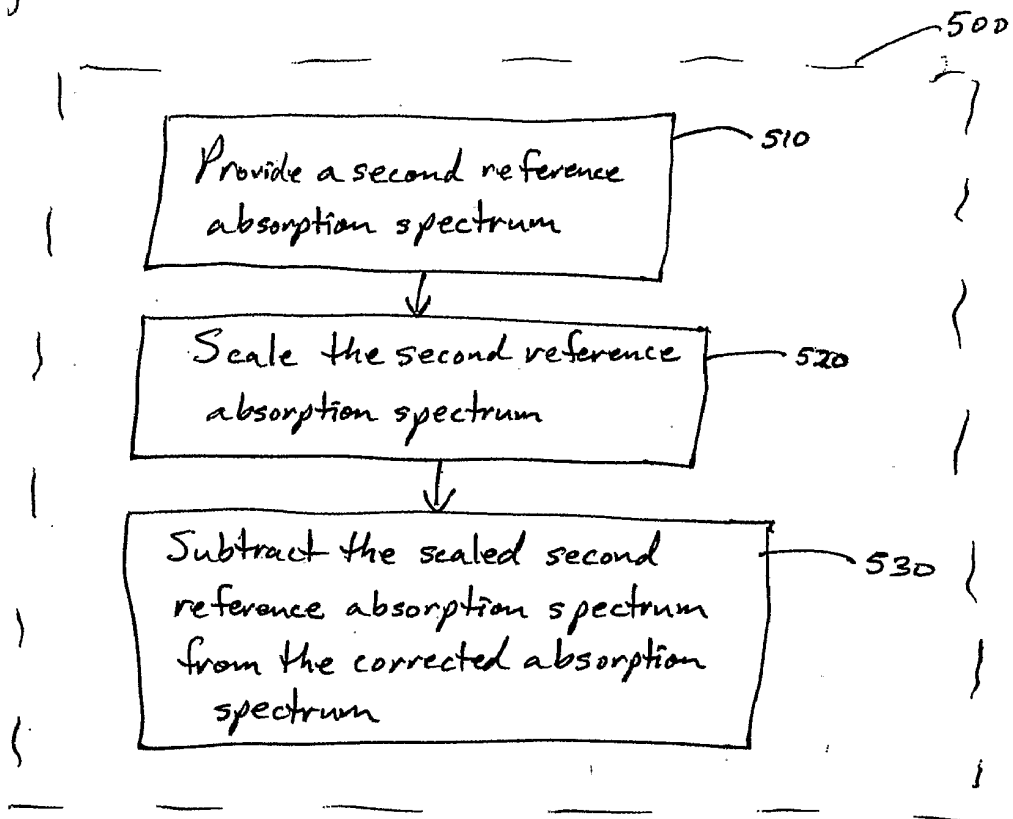 500
510
Provide a second reference
absorption spectrum
Scale the second reference
520
absorption spectrum
Subtract the scaled second
530
reference absorption spectrum
from the corrected absorption
spectrum